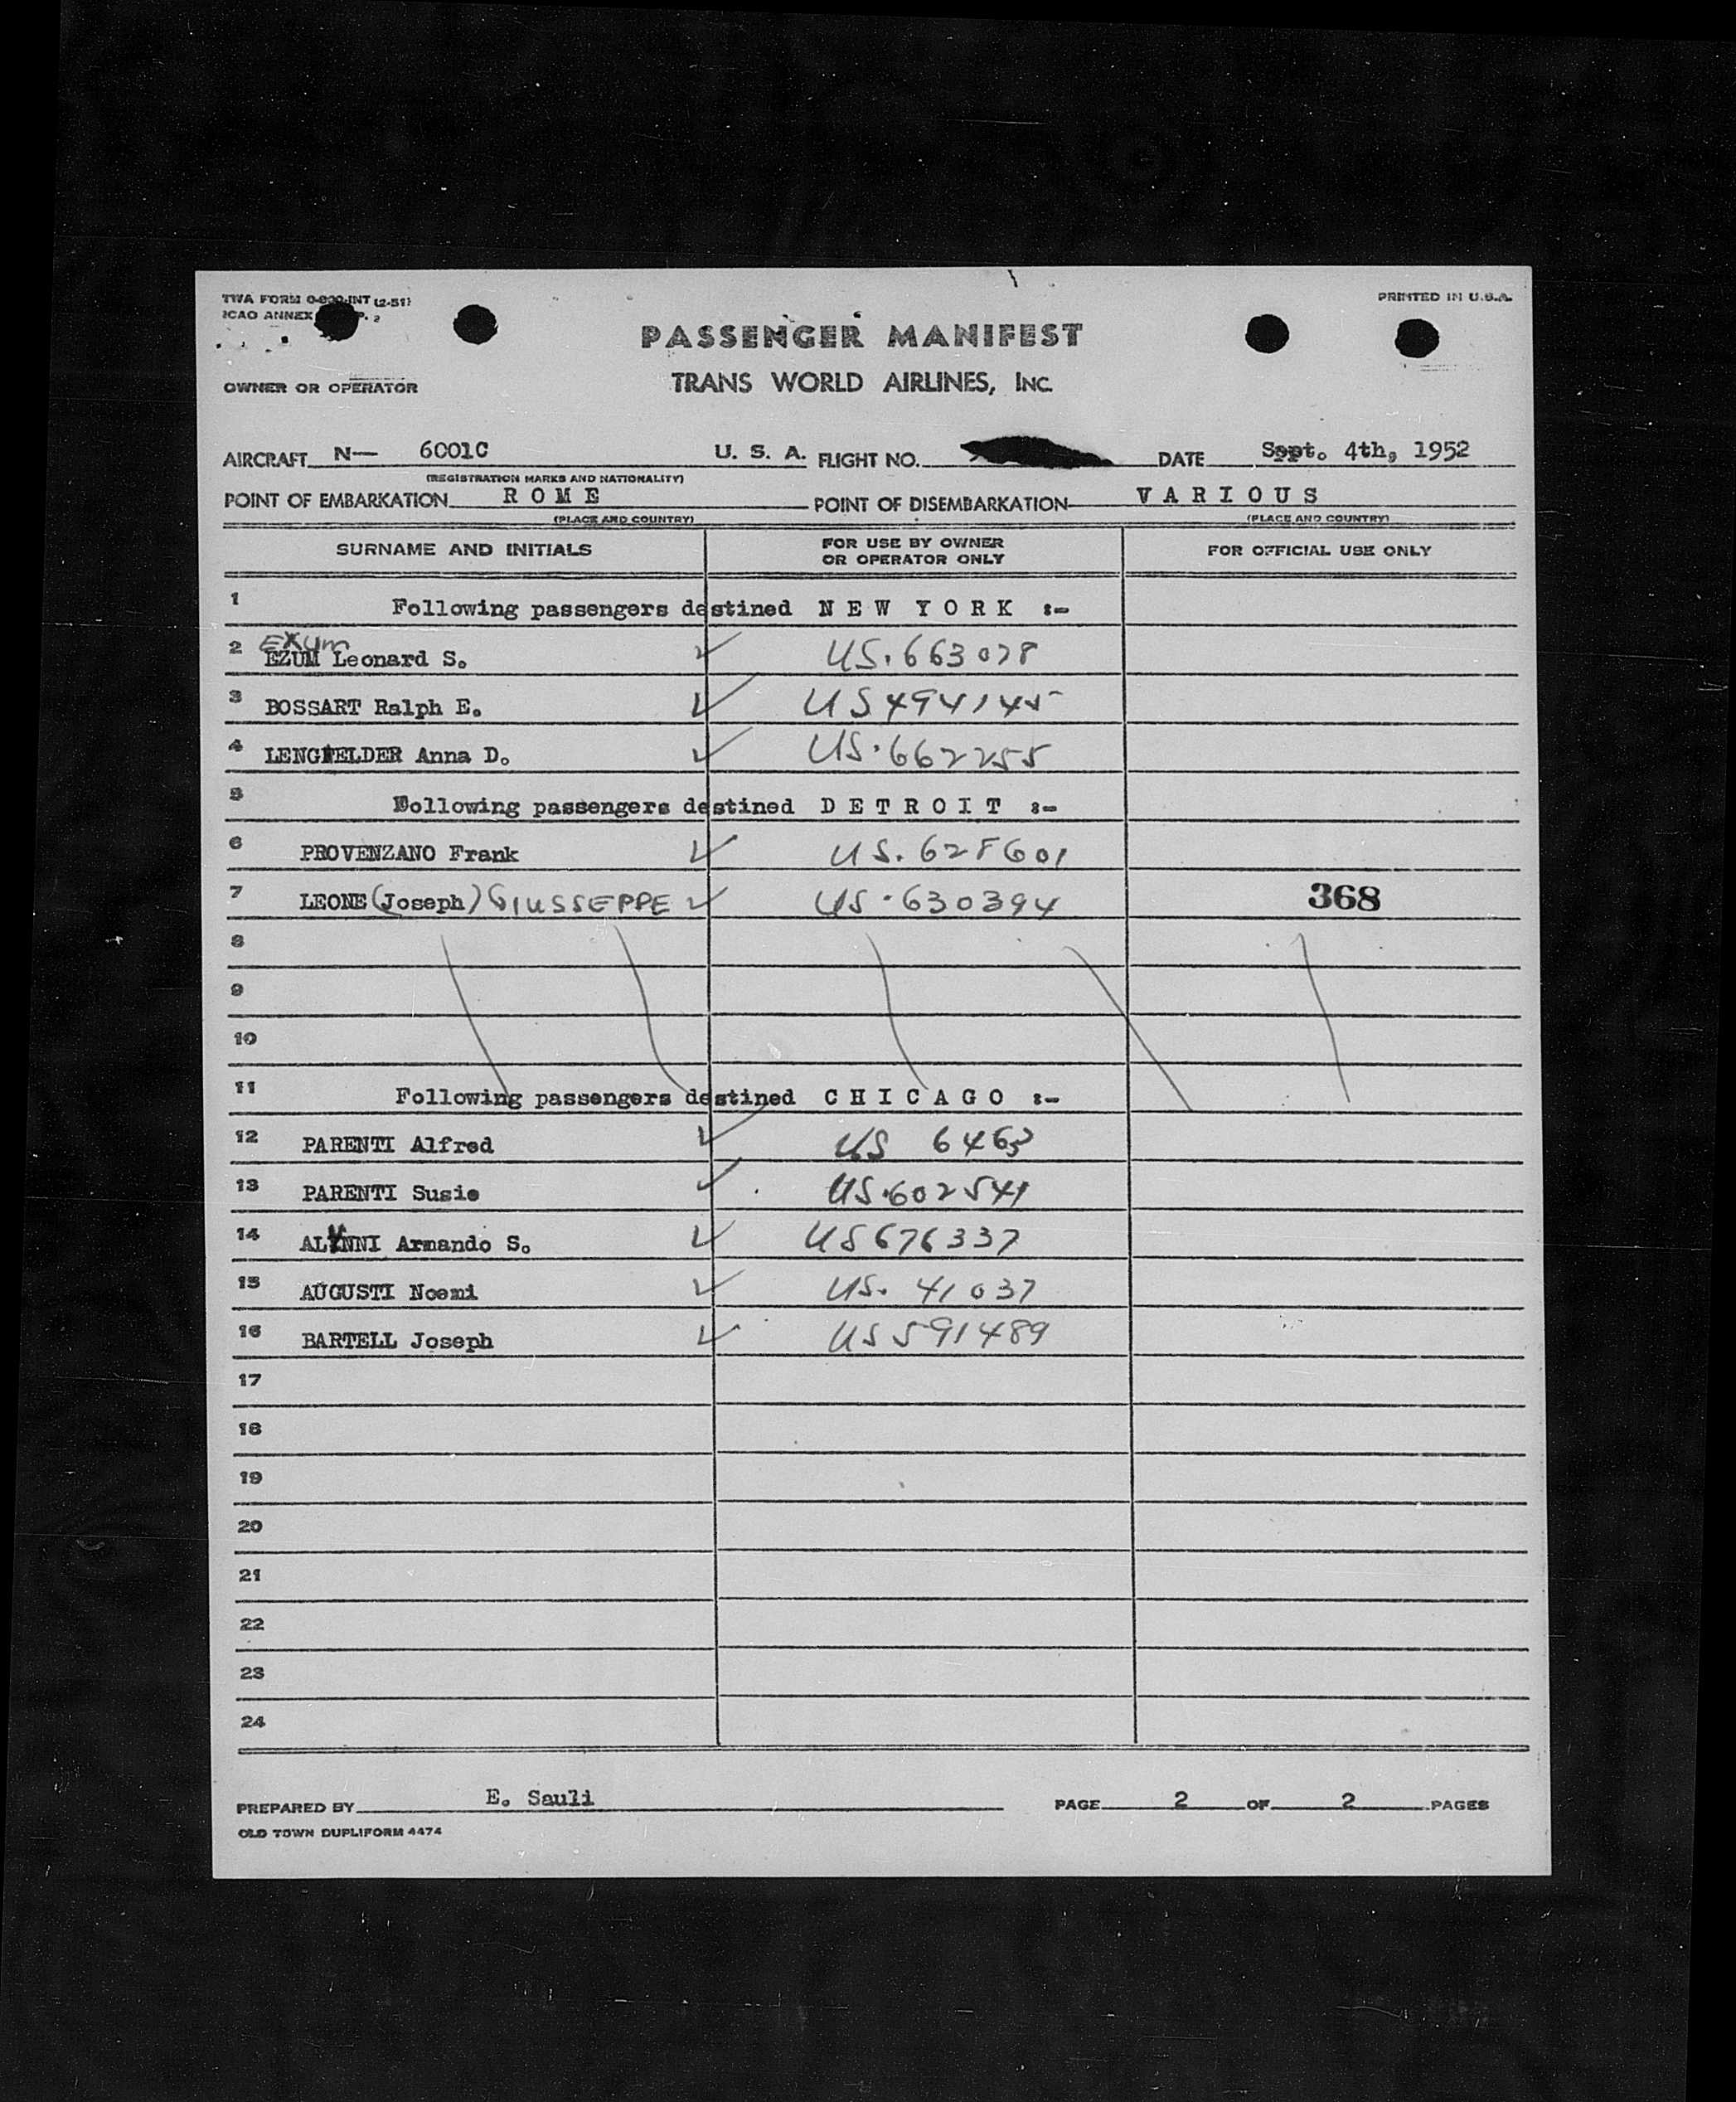 TWA FORM INT (2-51)
ICAO ANNEX P. 2
PRINTED IN U.S.A.
PASSENGER MANIFEST
TRANS WORLD AIRLINES, INC.
OWNER OR OPERATOR
AIRCRAFT N— 6001C U. S. A. FLIGHT NO. DATE Sept. 4th, 1952
(REGISTRATION MARKS AND NATIONALITY)
POINT OF EMBARKATION R O M E POINT OF DISEMBARKATION V A R I O U S
(PLACE AND COUNTRY) (PLACE AND COUNTRY)
SURNAME AND INITIALS FOR USE BY OWNER OR OPERATOR ONLY FOR OFFICIAL USE ONLY
1 Following passengers destined N E W Y O R K :-
EXUM
2 EZUM Leonard S. ✓ US.663078
3 BOSSART Ralph E. ✓ US494145
4 LENGFELDER Anna D. ✓ US.662255
5 Following passengers destined D E T R O I T :-
6 PROVENZANO Frank ✓ US.628601
7 LEONE (Joseph) GIUSSEPPE ✓ US.630394 368
8
9
10
11 Following passengers destined C H I C A G O :-
12 PARENTI Alfred ✓ US 6463
13 PARENTI Susie ✓ US.602541
14 Armando S. ✓ US676337
15 AUGUSTI Noemi ✓ US. 41037
16 BARTELL Joseph ✓ US591489
17
18
19
20
21
22
23
24
PREPARED BY E. Sauli PAGE 2 OF 2 PAGES
OLD TOWN DUPLIFORM 4474